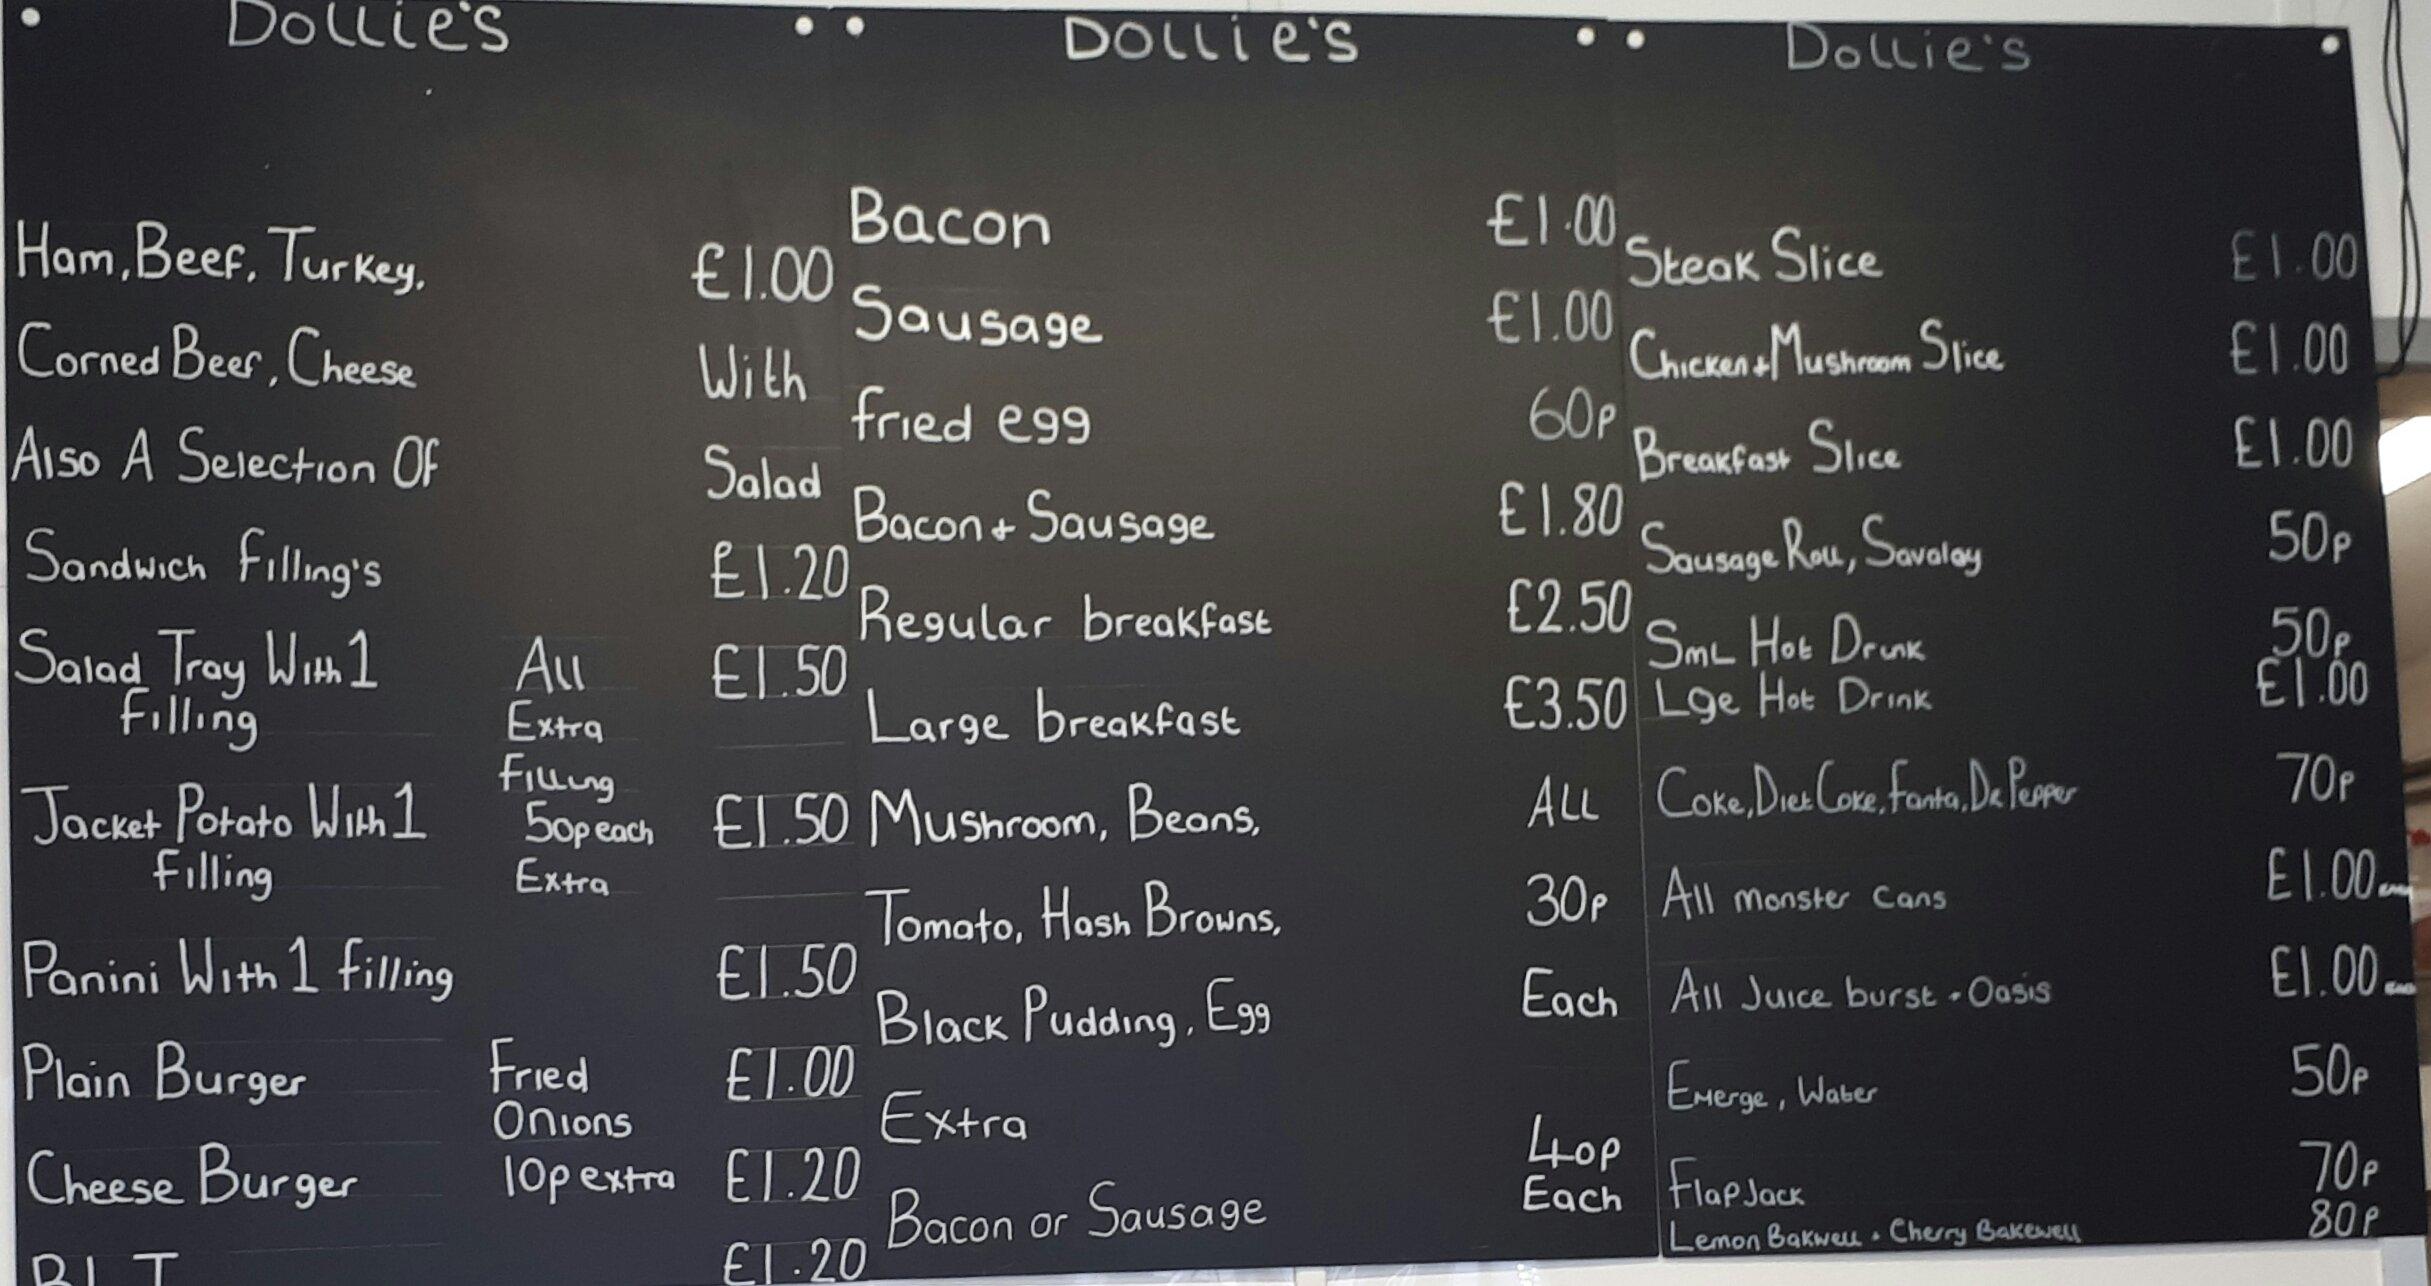 Dollie's
Ham, Beef, Turkey, £1.00
Corned Beef, Cheese With
Also A Selection Of Salad
Sandwich Filling's £1.20
Salad Tray With 1 All £1.50
Filling Extra
Filling
Jacket Potato With 1 50p each £1.50
Filling Extra
Panini With 1 filling £1.50
Plain Burger Fried £1.00
Onions
Cheese Burger 10p extra £1.20
BLT £1.20
Dollie's
Bacon £1.00
Sausage £1.00
fried egg 60p
Bacon + Sausage £1.80
Regular breakfast £2.50
Large breakfast £3.50
Mushroom, Beans, ALL
Tomato, Hash Browns, 30p
Black Pudding, Egg Each
Extra
40p
Bacon or Sausage Each
Dollie's
Steak Slice £1.00
Chicken + Mushroom Slice £1.00
Breakfast Slice £1.00
Sausage Roll, Savaloy 50p
Sml Hot Drink 50p
Lge Hot Drink £1.00
Coke, Diet Coke, Fanta, Dr Pepper 70p
All monster cans £1.00
All Juice burst • Oasis £1.00
Emerge, Water 50p
FlapJack 70p
Lemon Bakwell • Cherry Bakewell 80p